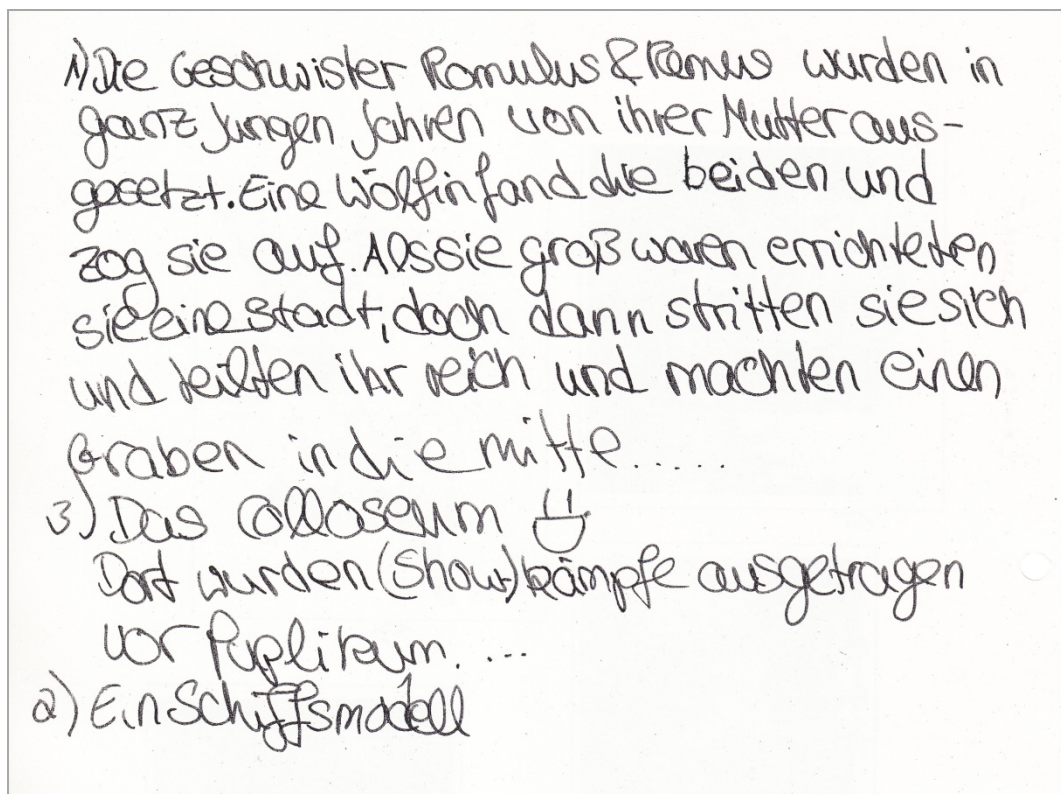 1) Die Geschwister Romulus & Remus wurden in
ganz Jungen Jahren von ihrer Mutter aus-
gesetzt. Eine Wölfin fand die beiden und
zog sie auf. Als sie groß waren errichteten
sie eine Stadt, doch dann stritten sie sich
und teilten ihr reich und machten einen
Graben in die mitte......
3) Das Colloseum
Dort wurden (Show) kämpfe ausgetragen
vor Puplikum. ...
2) Ein Schiffsmodell